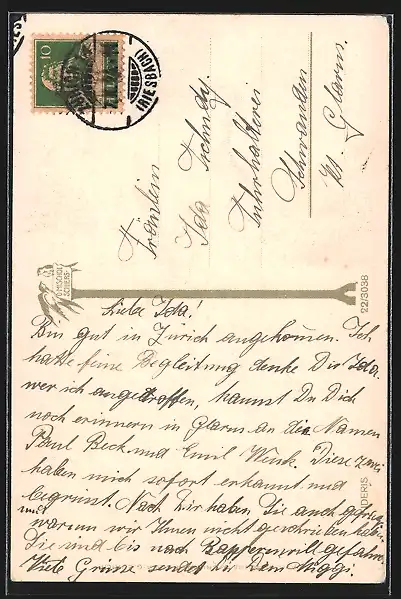 10
(RIESBACH)
Fräulein
Ida Tschudy
Fuhrhalterei
Schwanden
Kt. Glarus.
D. MISCHOL
SCHIERS
22/3038
Liebe Ida!
Bin gut in Zürich angekommen. Ich
hatte feine Begleitung denke Dir Ida.
wer ich angetroffen, kannst Du Dich
noch erinnern in Glarus an die Namen
Paul Beck und Emil Wenk. Diese zwei
haben mich sofort erkannt und
begrüsst. Nach Dir haben Sie auch gefragt
und warum wir Ihnen nicht geschrieben haben.
Sie sind bis nach Rapperswill gefahren.
Viele Grüsse sendet Dir Dein Miggi.